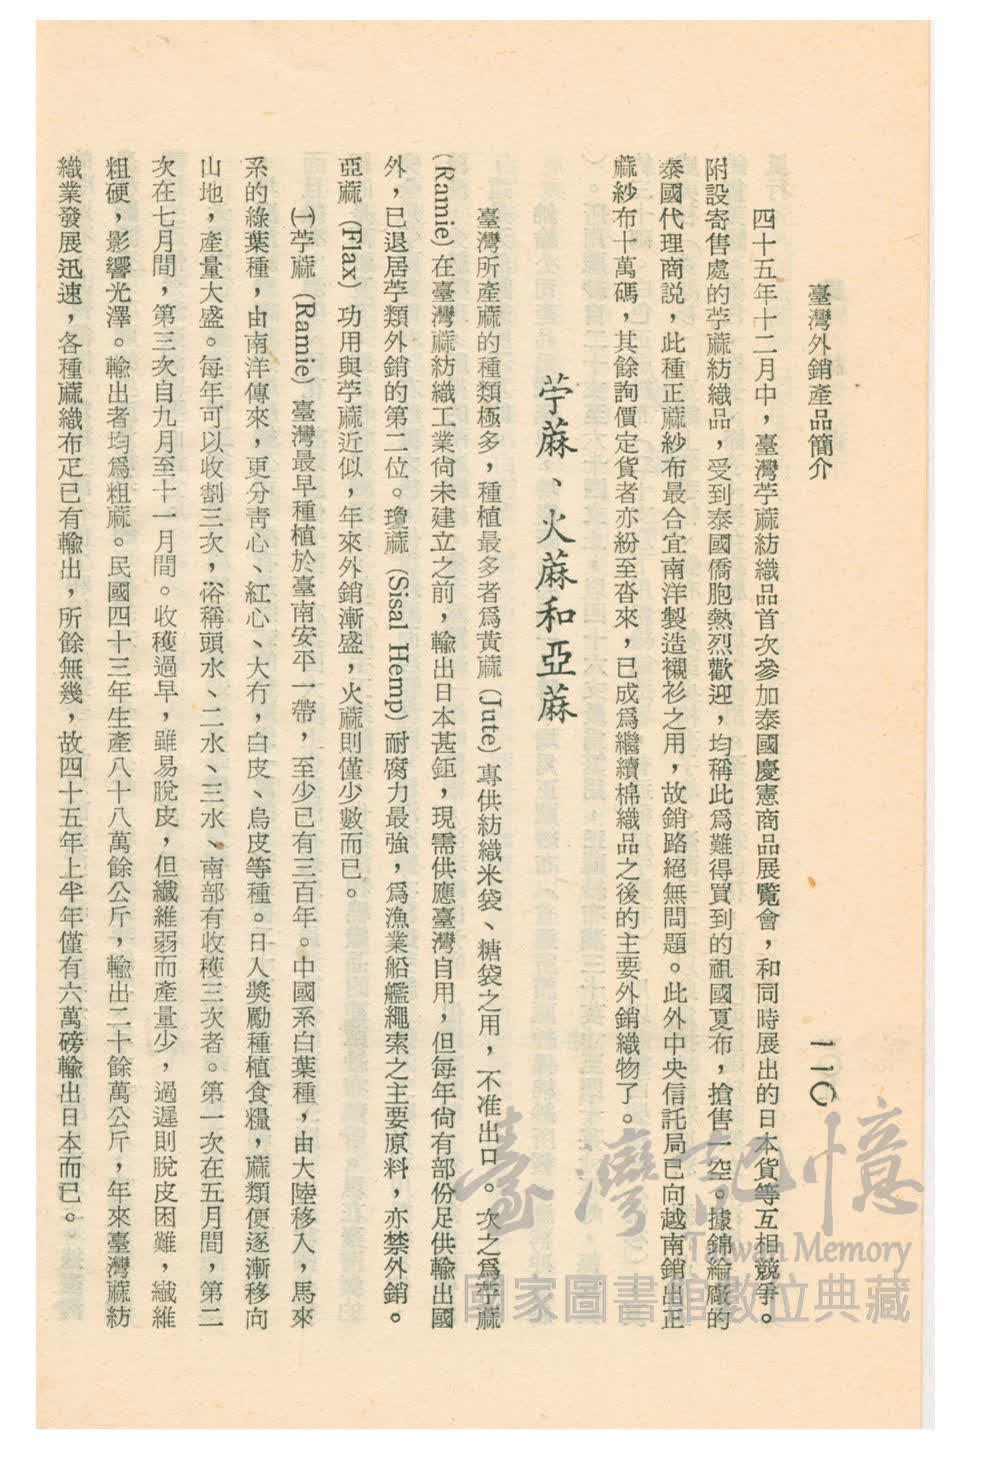 臺灣外銷產品簡介
一一〇
四十五年十二月中，臺灣苧蔴紡織品首次參加泰國慶憲商品展覽會，和同時展出的日本貨等互相競爭。
附設寄售處的苧蔴紡織品，受到泰國僑胞熱烈歡迎，均稱此爲難得買到的祖國夏布，搶售一空。據錦綸廠的
泰國代理商說，此種正蔴紗布最合宜南洋製造襯衫之用，故銷路絕無問題。此外中央信託局已向越南銷出正
蔴紗布十萬碼，其餘詢價定貨者亦紛至沓來，已成爲繼續棉織品之後的主要外銷織物了。
苧蔴、火蔴和亞蔴
臺灣所產蔴的種類極多，種植最多者爲黃蔴（Jute）專供紡織米袋、糖袋之用，不准出口。次之爲苧蔴
（Ramie）在臺灣蔴紡織工業尙未建立之前，輸出日本甚鉅，現需供應臺灣自用，但每年尙有部份足供輸出國
外，已退居苧類外銷的第二位。瓊蔴（Sisal Hemp）耐腐力最強，爲漁業船艦繩索之主要原料，亦禁外銷。
亞蔴（Flax）功用與苧蔴近似，年來外銷漸盛，火蔴則僅少數而已。
㈠苧蔴（Ramie）臺灣最早種植於臺南安平一帶，至少已有三百年。中國系白葉種，由大陸移入，馬來
系的綠葉種，由南洋傳來，更分靑心、紅心、大冇，白皮、烏皮等種。日人獎勵種植食糧，蔴類便逐漸移向
山地，產量大盛。每年可以收割三次，俗稱頭水、二水、三水、南部有收穫三次者。第一次在五月間，第二
次在七月間，第三次自九月至十一月間。收穫過早，雖易脫皮，但纖維弱而產量少，過遲則脫皮困難，纖維
粗硬，影響光澤。輸出者均爲粗蔴。民國四十三年生產八十八萬餘公斤，輸出二十餘萬公斤，年來臺灣蔴紡
織業發展迅速，各種蔴織布疋已有輸出，所餘無幾，故四十五年上半年僅有六萬磅輸出日本而已。
臺灣記憶
Taiwan Memory
國家圖書館數位典藏